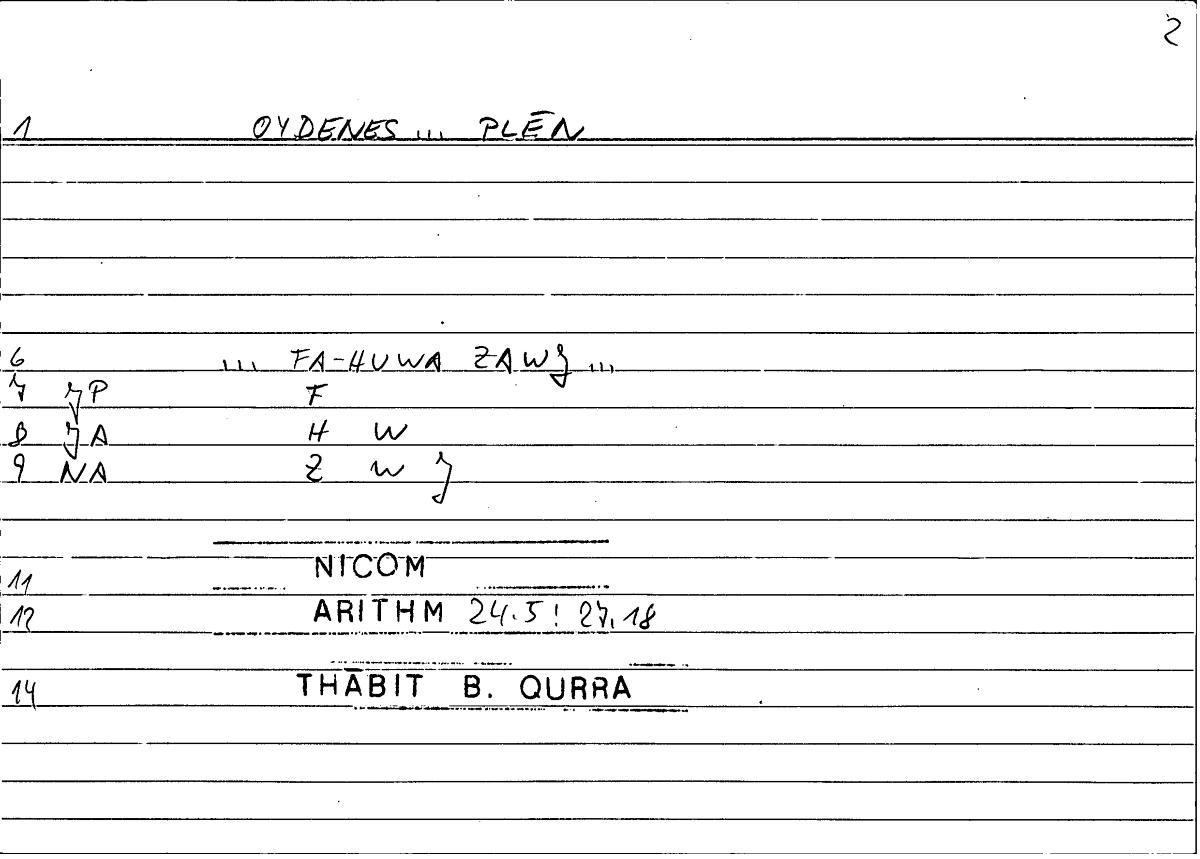 2
1 OYDENES ... PLĒN
6 ... FA-HUWA ZAWJ ...
7 JP F
8 JA H W
9 NA Z W J
11 NICOM
12 ARITHM 24.5! 27.18
14 THĀBIT B. QURRA